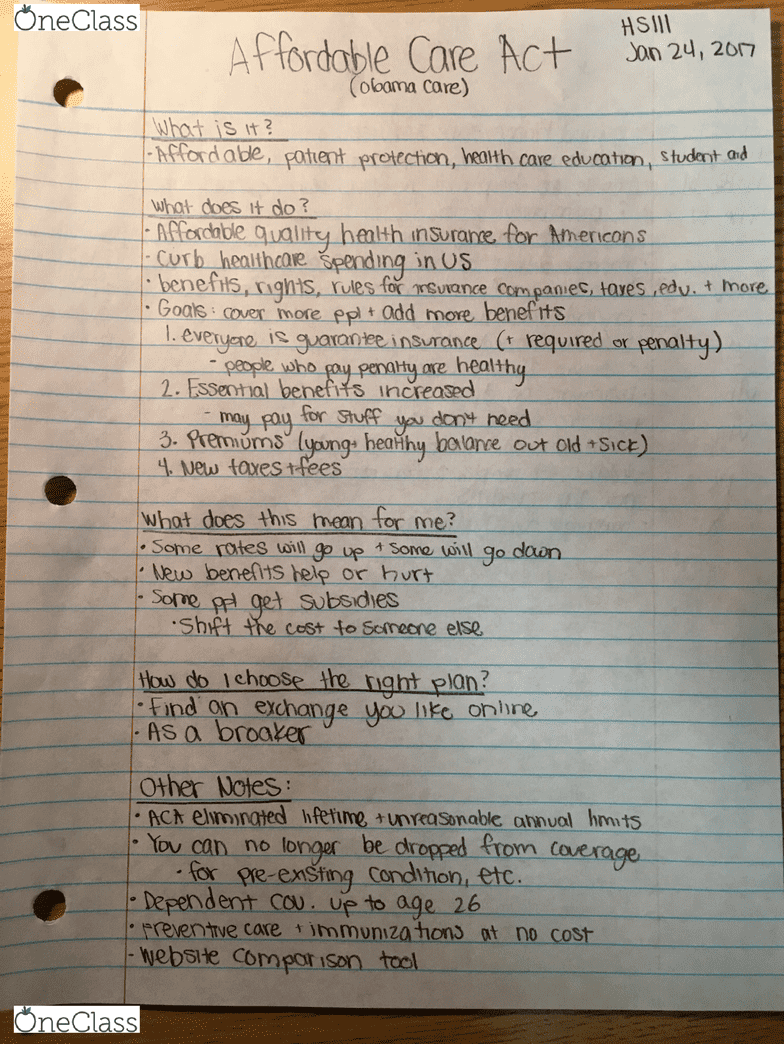 OneClass
HSIII
Affordable Care Act
Jan 24, 2017
(Obama Care)
What is it?
-Affordable, patient protection, health care education, student aid
What does it do?
· Affordable quality health insurance for Americans
- Curb healthcare spending in US
· benefits, rights, rules for insurance companies, taxes, edu. + more
· Goals: cover more ppl + add more benefits
1. everyone is guarantee insurance (+ required or penalty)
- people who pay penalty are healthy
2. Essential benefits increased
- may pay for stuff you don't need
3. Premiums (young + healthy balance out old + sick)
4. New taxes + fees
What does this mean for me?
· Some rates will go up + some will go down
· New benefits help or hurt
- Some ppl get subsidies
· Shift the cost to someone else
How do I choose the right plan?
· Find an exchange you like online
· As a broaker
Other Notes:
· ACA eliminated lifetime + unreasonable annual limits
· You can no longer be dropped from coverage
· for pre-existing condition, etc.
· Dependent cov. up to age 26
· Preventive care + immunizations at no cost
- Website comparison tool
OneClass